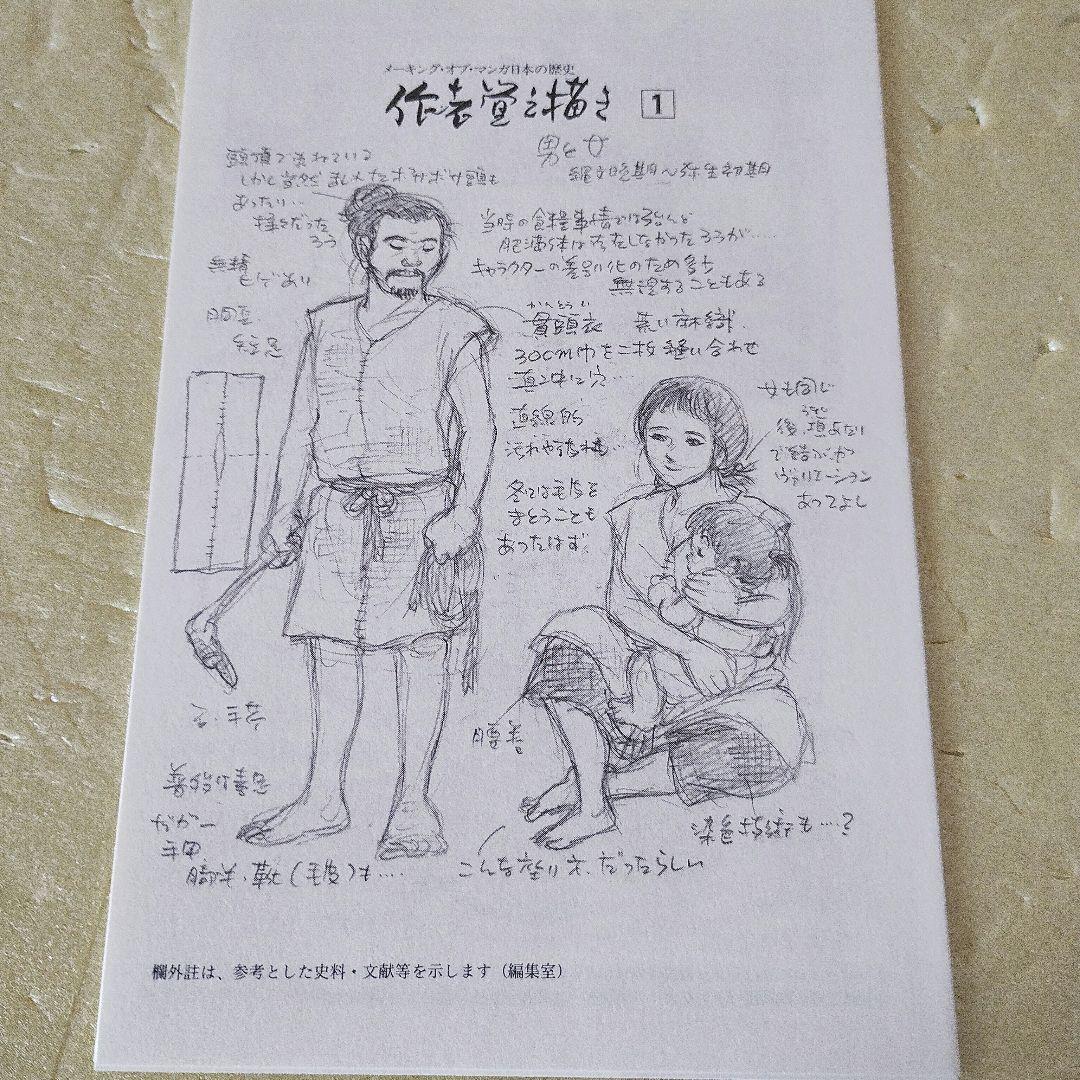 メーキング・オブ・マンガ日本の歴史
作者覚え描き 1
男と女
縄文晩期〜弥生初期
頭頂で束ねている
しかし当然 ボサボサ頭も
あったり…
様々だった
ろう
無精
ヒゲあり
胴長
短足
当時の食糧事情ではほとんど
肥満体は存在しなかったろうが……
キャラクターの差別化のため多少
無理することもある
かんとうい
貫頭衣 荒い麻織.
30cm巾を二枚縫い合わせ
真ン中に穴…
直線的
汚れや
冬では毛皮を
まとうことも
あったはず.
女も同じ
後頂あたり
で結ぶが
ヴァリエーション
あってよし
石・手斧
普段は素足
だが
手甲
脚半・靴(毛皮)も….
腰巻
染色技術も….?
こんな座り方.だったらしい
欄外註は、参考とした史料・文献等を示します(編集室)